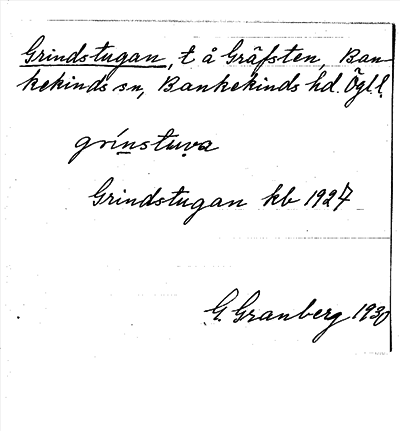 Grindstugan, t å Gräfsten, Ban-
kekinds sn, Bankekinds hd. Ögl.
grínstuva
Grindstugan kb 1927
G. Granberg 1930